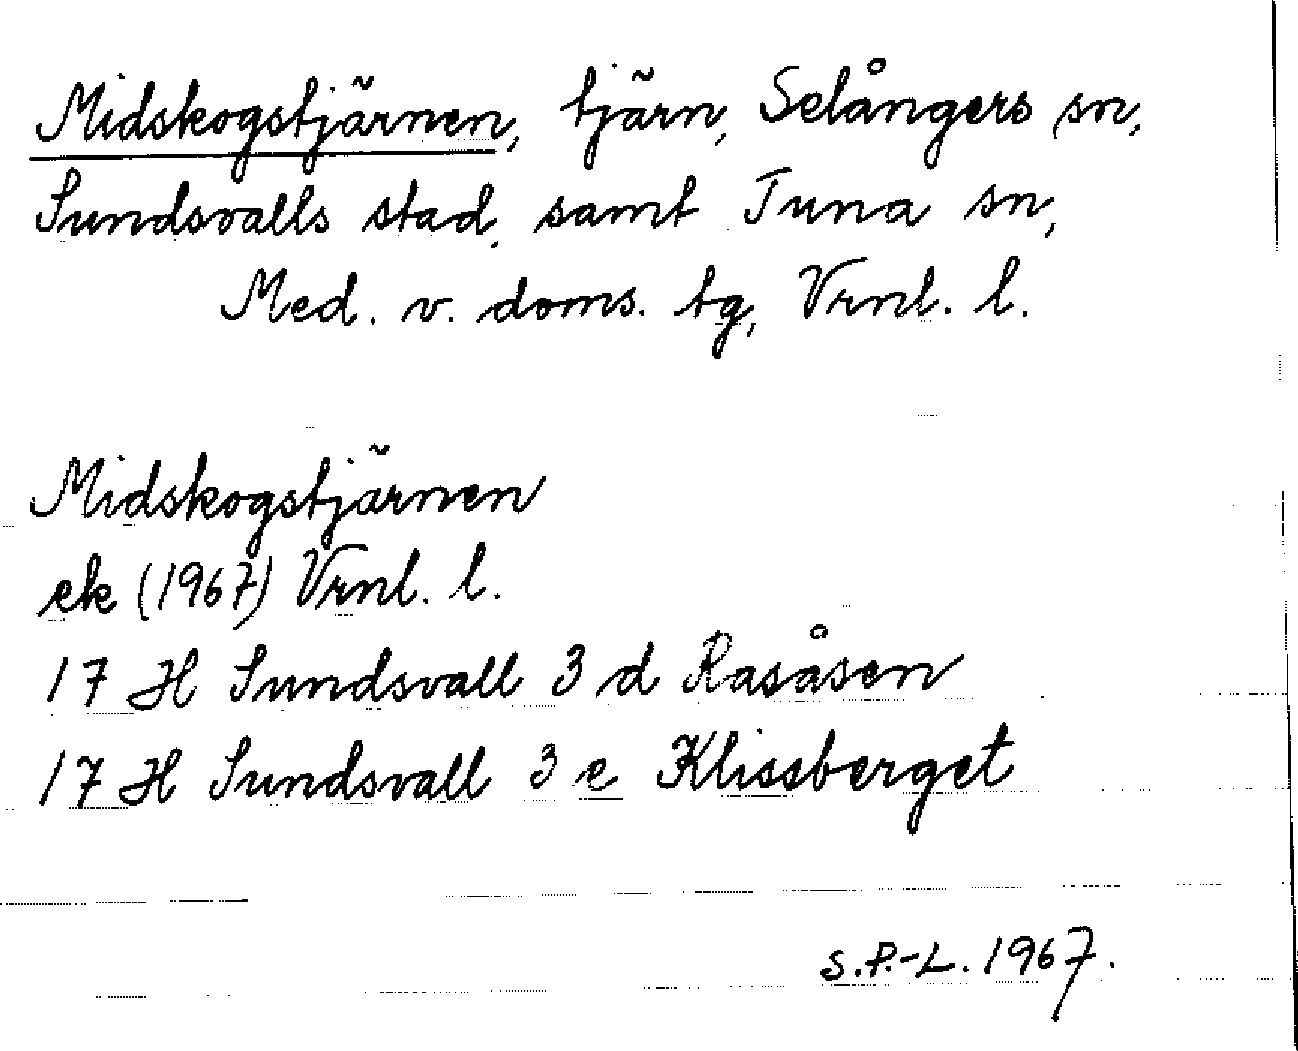 Midskogstjärnen, tjärn, Selångers sn,
Sundsvalls stad, samt Tuna sn,
Med. v. doms. tg, Vrnl. l.
Midskogstjärnen
ek (1967) Vrnl. l.
17 H Sundsvall 3 d Rasåsen
17 H Sundsvall 3 e Klissberget
S.P.-L. 1967.